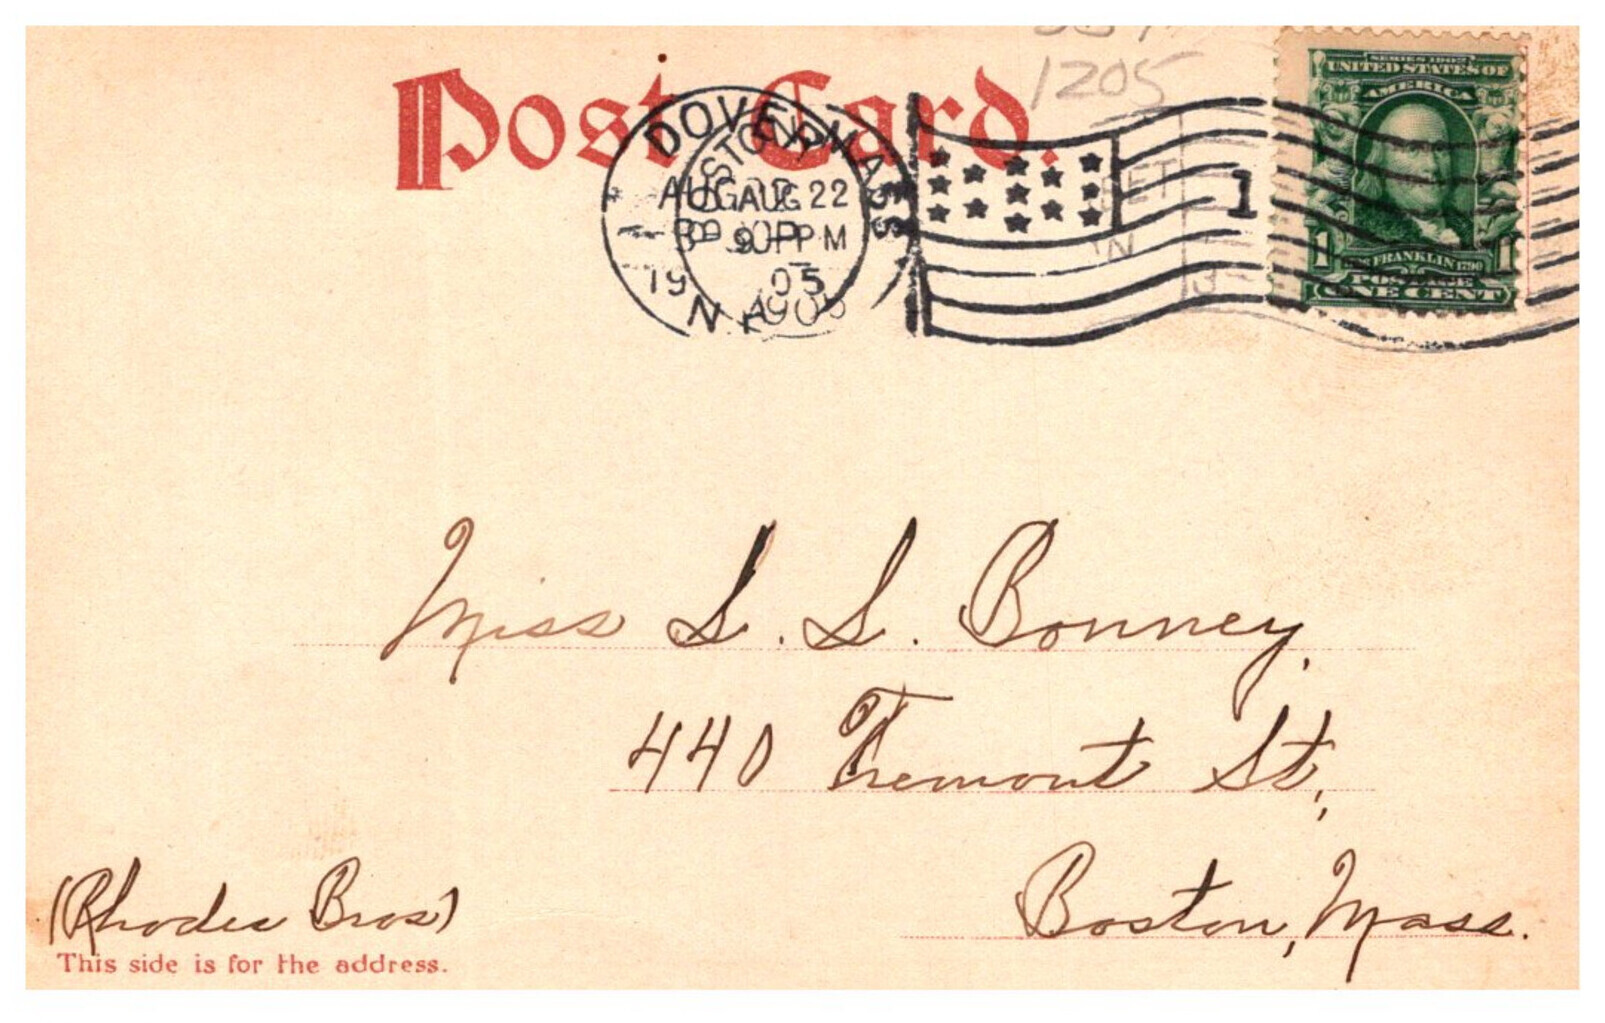 Post Card.
1205
DOVER MASS
AUG 22
PM
19 05
N.H.
1
SERIES 1902
UNITED STATES OF
AMERICA
1 FRANKLIN 1790 1
POSTAGE
ONE CENT
Miss S. S. Bonney,
440 Tremont St,
Boston, Mass.
(Rhodes Bros)
This side is for the address.